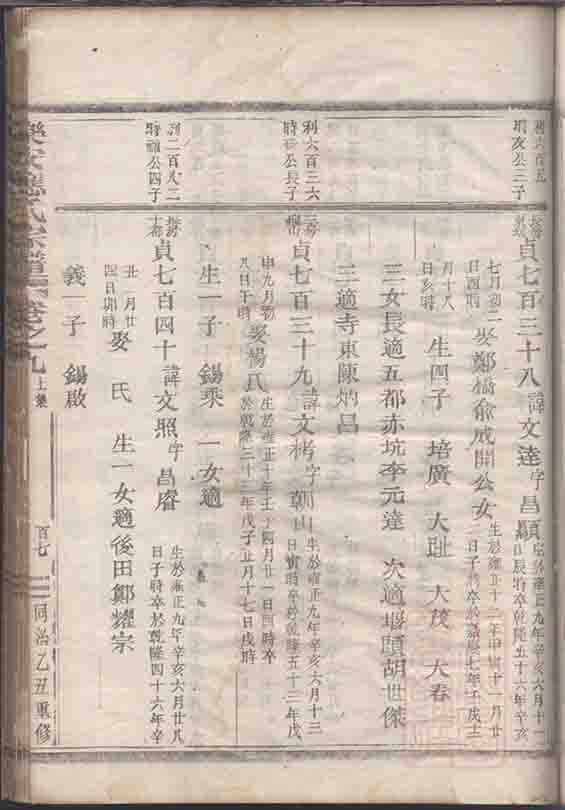 利六百五
公三子
貞七百三十八諱文逵字昌顯
生於雍正九年辛亥六月十一
辰時卒乾隆五十六年辛亥
七月初二
日酉時
娶鄭橋俞成開公女
生於雍正十二年甲寅十一月廿
二日子時卒於嘉慶七年壬戌十
月十八
日亥時
生四子 培廣 大趾 大茂 大春
三女長適五都赤坑李元達 次適堰頭胡世傑
三適寺東陳炳昌
利六百三六
公長子
貞七百三十九諱文栲字朝山
生於雍正九年辛亥六月十三
日寅時卒於乾隆五十三年戊
申九月初
八日午時
娶楊氏
生於雍正十年壬子四月廿一日酉時卒
於乾隆三十三年戊子五月十七日戌時
生一子 錫乘 一女適
利二百八三
時 公四子
貞七百四十諱文照字昌睿
生於雍正九年辛亥六月廿八
日子時卒於乾隆四十六年辛
丑一月廿
四日卯時
娶 氏 生一女適後田鄭耀宗
義一子 錫啟
氏宗譜 卷之九 上集
百七
同治乙丑重修